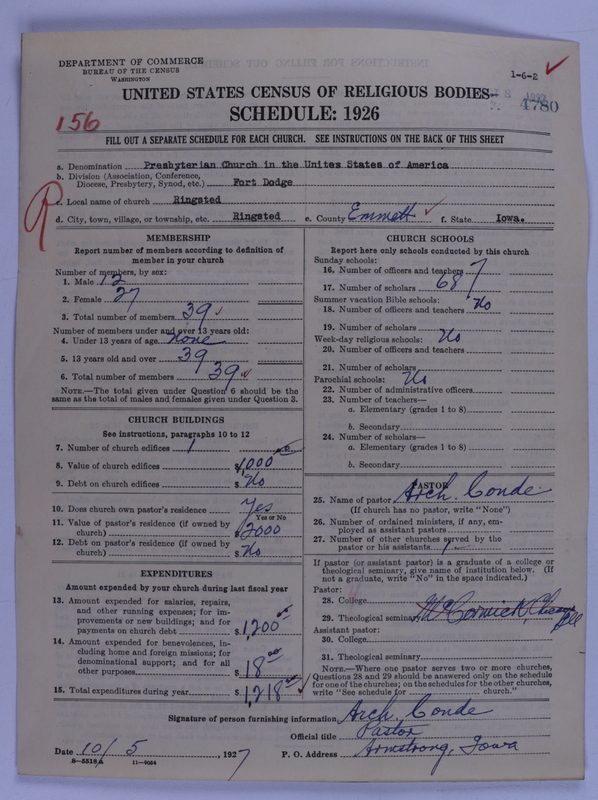 DEPARTMENT OF COMMERCE
BUREAU OF THE CENSUS
WASHINGTON
1-6-2 ✓
4780
UNITED STATES CENSUS OF RELIGIOUS BODIES
SCHEDULE: 1926
156
FILL OUT A SEPARATE SCHEDULE FOR EACH CHURCH. SEE INSTRUCTIONS ON THE BACK OF THIS SHEET
a. Denomination Presbyterian Church in the Unites States of America
b. Division (Association, Conference,
Diocese, Presbytery, Synod, etc.) Fort Dodge
R
c. Local name of church Ringsted
d. City, town, village, or township, etc. Ringsted e. County Emmett ✓ f. State Iowa.
MEMBERSHIP
Report number of members according to definition of
member in your church
Number of members, by sex:
1. Male 12
2. Female 27
3. Total number of members 39 ✓
Number of members under and over 13 years old:
4. Under 13 years of age None
5. 13 years old and over 39
6. Total number of members 39 ✓
NOTE.—The total given under Question 6 should be the
same as the total of males and females given under Question 3.
CHURCH BUILDINGS
See instructions, paragraphs 10 to 12
7. Number of church edifices 1
8. Value of church edifices $ 1,000
9. Debt on church edifices $ No
10. Does church own pastor's residence Yes
Yes or No
11. Value of pastor's residence (if owned by
church) $ 2000
12. Debt on pastor's residence (if owned by
church) $ No
EXPENDITURES
Amount expended by your church during last fiscal year
13. Amount expended for salaries, repairs,
and other running expenses; for im-
provements or new buildings; and for
payments on church debt $ 1,200 00
14. Amount expended for benevolences, in-
cluding home and foreign missions; for
denominational support; and for all
other purposes $ 18 00
15. Total expenditures during year $ 1,218 00 ✓
CHURCH SCHOOLS
Report here only schools conducted by this church
Sunday schools:
16. Number of officers and teachers 7
17. Number of scholars 68
Summer vacation Bible schools: No
18. Number of officers and teachers
19. Number of scholars
Week-day religious schools: No
20. Number of officers and teachers
21. Number of scholars
Parochial schools: No
22. Number of administrative officers
23. Number of teachers—
a. Elementary (grades 1 to 8)
b. Secondary
24. Number of scholars—
a. Elementary (grades 1 to 8)
b. Secondary
PASTOR
25. Name of pastor Arch. Conde
(If church has no pastor, write "None")
26. Number of ordained ministers, if any, em-
ployed as assistant pastors
27. Number of other churches served by the
pastor or his assistants 1
If pastor (or assistant pastor) is a graduate of a college or
theological seminary, give name of institution below. (If
not a graduate, write "No" in the space indicated.)
Pastor:
28. College
29. Theological seminary McCormick
Assistant pastor:
30. College
31. Theological seminary
NOTE.—Where one pastor serves two or more churches,
Questions 28 and 29 should be answered only on the schedule
for one of the churches; on the schedules for the other churches,
write "See schedule for church."
Signature of person furnishing information Arch. Conde
Official title Pastor
Date 10/5, 1927 P. O. Address Armstrong, Iowa
8-5518 A 11-9054